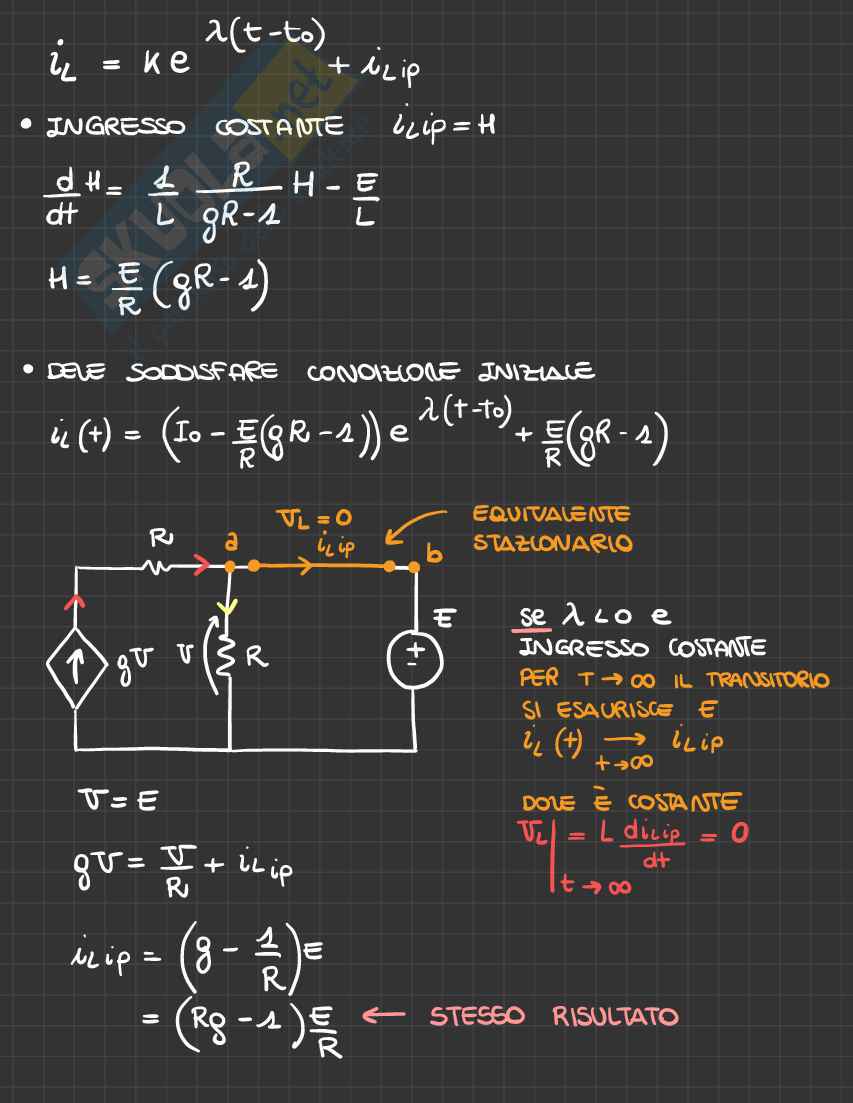 iL = K e^λ(t-t0) + iLip
• INGRESSO COSTANTE iLip = H
d/dt H = 1/L R/(gR-1) H - E/L
H = E/R (gR-1)
• DEVE SODDISFARE CONDIZIONE INIZIALE
iL(t) = (I0 - E/R (gR-1)) e^λ(t-t0) + E/R (gR-1)
VL = 0
EQUIVALENTE
STAZIONARIO
R a iLip b
E
gV V R + -
se λ < 0 e
INGRESSO COSTANTE
PER T → ∞ IL TRANSITORIO
SI ESAURISCE E
iL(t) → iLip
t→∞
DOVE È COSTANTE
VL| = L diLip/dt = 0
t→∞
V = E
gV = V/R + iLip
iLip = (g - 1/R) E
= (Rg - 1) E/R ← STESSO RISULTATO
SKUOLA.net